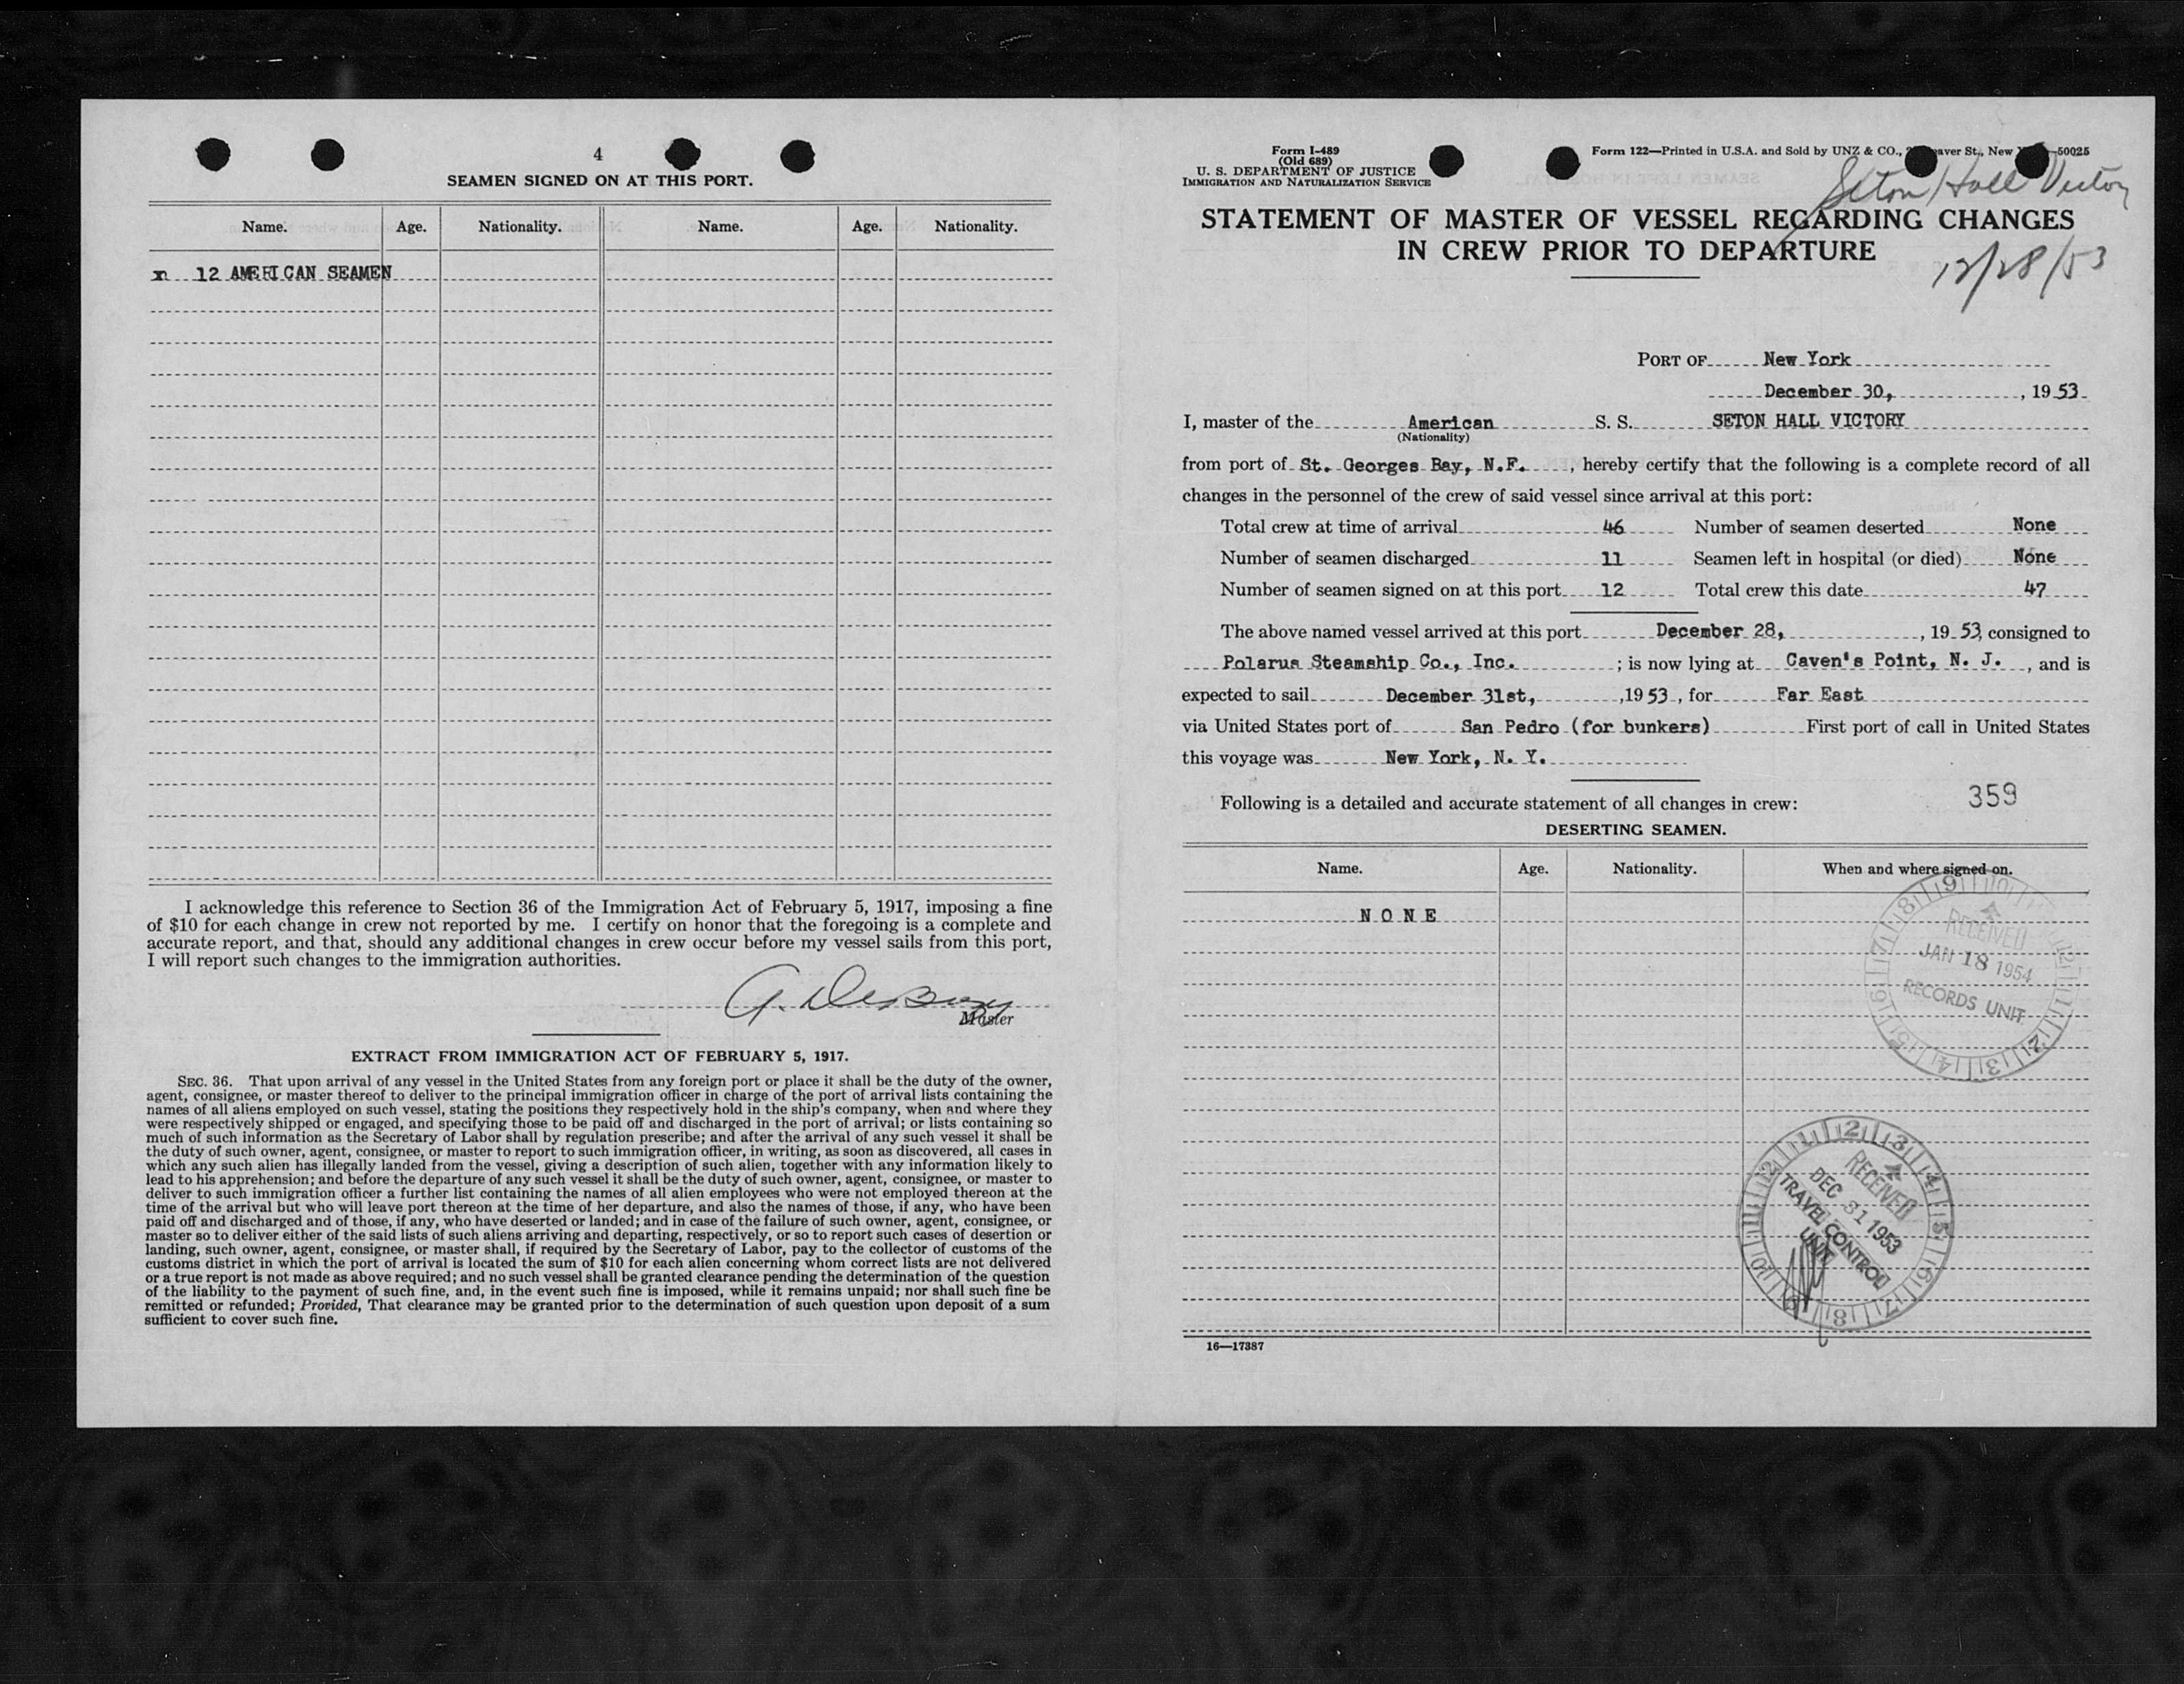 4
SEAMEN SIGNED ON AT THIS PORT.
Name. Age. Nationality. Name. Age. Nationality.
x 12 AMERICAN SEAMEN
I acknowledge this reference to Section 36 of the Immigration Act of February 5, 1917, imposing a fine
of $10 for each change in crew not reported by me. I certify on honor that the foregoing is a complete and
accurate report, and that, should any additional changes in crew occur before my vessel sails from this port,
I will report such changes to the immigration authorities.
Master
EXTRACT FROM IMMIGRATION ACT OF FEBRUARY 5, 1917.
SEC. 36. That upon arrival of any vessel in the United States from any foreign port or place it shall be the duty of the owner,
agent, consignee, or master thereof to deliver to the principal immigration officer in charge of the port of arrival lists containing the
names of all aliens employed on such vessel, stating the positions they respectively hold in the ship's company, when and where they
were respectively shipped or engaged, and specifying those to be paid off and discharged in the port of arrival; or lists containing so
much of such information as the Secretary of Labor shall by regulation prescribe; and after the arrival of any such vessel it shall be
the duty of such owner, agent, consignee, or master to report to such immigration officer, in writing, as soon as discovered, all cases in
which any such alien has illegally landed from the vessel, giving a description of such alien, together with any information likely to
lead to his apprehension; and before the departure of any such vessel it shall be the duty of such owner, agent, consignee, or master to
deliver to such immigration officer a further list containing the names of all alien employees who were not employed thereon at the
time of the arrival but who will leave port thereon at the time of her departure, and also the names of those, if any, who have been
paid off and discharged and of those, if any, who have deserted or landed; and in case of the failure of such owner, agent, consignee, or
master so to deliver either of the said lists of such aliens arriving and departing, respectively, or so to report such cases of desertion or
landing, such owner, agent, consignee, or master shall, if required by the Secretary of Labor, pay to the collector of customs of the
customs district in which the port of arrival is located the sum of $10 for each alien concerning whom correct lists are not delivered
or a true report is not made as above required; and no such vessel shall be granted clearance pending the determination of the question
of the liability to the payment of such fine, and, in the event such fine is imposed, while it remains unpaid; nor shall such fine be
remitted or refunded; Provided, That clearance may be granted prior to the determination of such question upon deposit of a sum
sufficient to cover such fine.
Form I-489
(Old 689)
U. S. DEPARTMENT OF JUSTICE
IMMIGRATION AND NATURALIZATION SERVICE
Form 122—Printed in U.S.A. and Sold by UNZ & CO., St., New —50025
Seton Hall Victory
STATEMENT OF MASTER OF VESSEL REGARDING CHANGES
IN CREW PRIOR TO DEPARTURE
12/28/53
PORT OF New York
December 30, , 19 53
I, master of the American S. S. SETON HALL VICTORY
(Nationality)
from port of St. Georges Bay, N.F. , hereby certify that the following is a complete record of all
changes in the personnel of the crew of said vessel since arrival at this port:
Total crew at time of arrival 46 Number of seamen deserted None
Number of seamen discharged 11 Seamen left in hospital (or died) None
Number of seamen signed on at this port 12 Total crew this date 47
The above named vessel arrived at this port December 28, , 19 53, consigned to
Polarus Steamship Co., Inc. ; is now lying at Caven's Point, N. J. , and is
expected to sail December 31st, ,19 53 , for Far East
via United States port of San Pedro (for bunkers) First port of call in United States
this voyage was New York, N. Y.
359
Following is a detailed and accurate statement of all changes in crew:
DESERTING SEAMEN.
Name. Age. Nationality. When and where signed on.
NONE
RECEIVED
JAN 18 1954
RECORDS UNIT
RECEIVED
DEC 31 1953
TRAVEL CONTROL
UNIT
16—17387